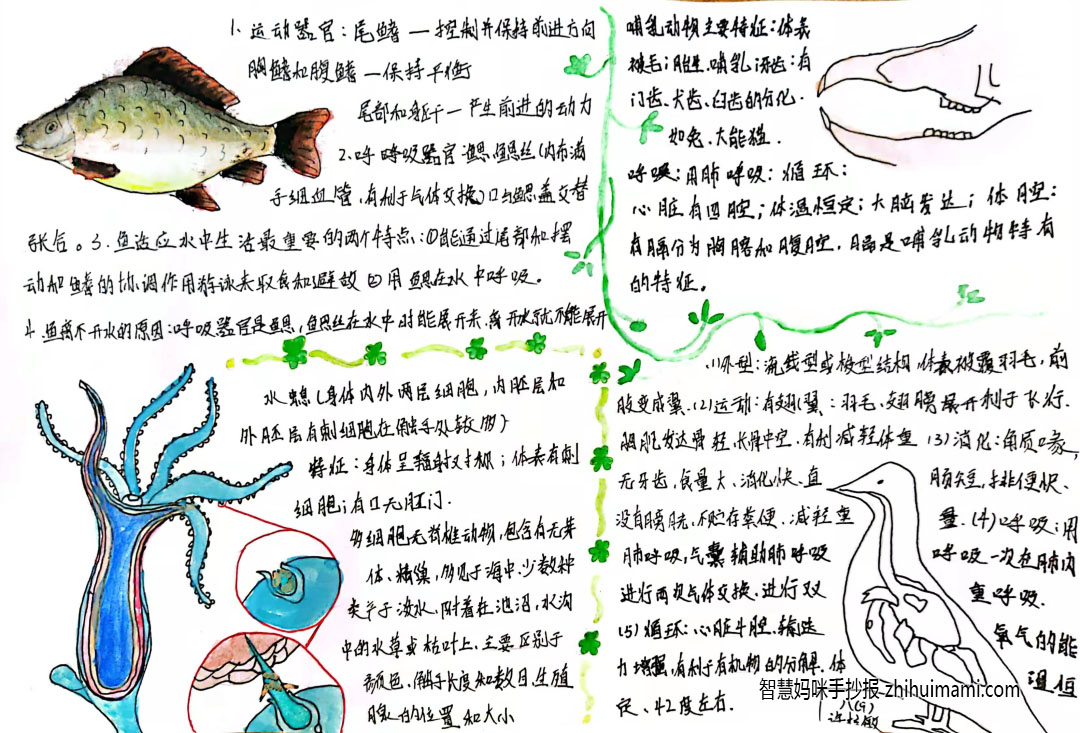 1、运动器官：尾鳍—控制并保持前进方向
胸鳍和腹鳍—保持平衡
尾部和躯干—产生前进的动力
2、呼呼吸器官:鳃,鳃丝(内布满
毛细血管,有利于气体交换)口与鳃盖交替
张合。3、鱼适应水中生活最重要的两个特点:①能通过尾部和摆
动和鳍的协调作用游泳来取食和避敌②用鳃在水中呼吸。
4、鱼离不开水的原因:呼吸器官是鳃,鳃丝在水中时能展开来,离开水就不能展开
哺乳动物主要特征:体表
被毛;胎生、哺乳;牙齿:有
门齿、犬齿、臼齿的分化.
如兔、大熊猫.
呼吸:用肺呼吸:循环:
心脏有四腔;体温恒定;大脑发达;体腔:
有膈分为胸腔和腹腔,膈是哺乳动物特有
的特征。
水螅(身体内外两层细胞,内胚层和
外胚层有刺细胞在触手处较多)
特征:身体呈辐射对称;体表有刺
细胞;有口无肛门.
多细胞无脊椎动物,包含有无芽
体、精巢,多见于海中,少数种
类产于淡水.附着在池沼,水沟
中的水草或枯叶上.主要区别于
颜色、触手长度和数目,生殖
腺的位置和大小
(1)外型:流线型或梭型结构,体表被覆羽毛,前
肢变成翼.(2)运动:有翅(翼:羽毛、翅膀展开利于飞行.
胸肌发达骨轻,长骨中空.有利减轻体重(3)消化:角质喙,
无牙齿,食量大、消化快、直
肠短,排便快、
没有膀胱,不贮存粪便.减轻重
量.(4)呼吸:用
肺呼吸,气囊辅助肺呼吸
呼吸一次在肺内
进行两次气体交换、进行双
重呼吸.
(5)循环:心脏4腔.输送
氧气的能
力增强,有利于有机物的分解.体
温恒
定、42度左右.
智慧妈咪手抄报-zhihuimami.com